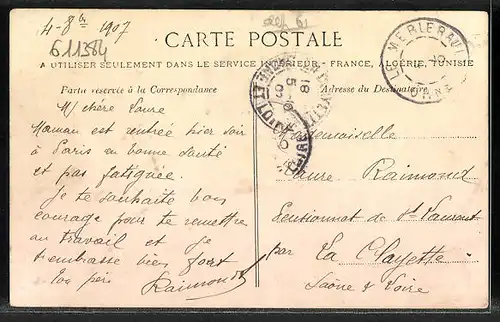 4-8bre 1907
611384
dep 61
CARTE POSTALE
A UTILISER SEULEMENT DANS LE SERVICE INTÉRIEUR - FRANCE, ALGÉRIE, TUNISIE
Partie réservée à la Correspondance
Adresse du Destinataire
LE MERLERAULT
ORNE
Ma chère Laure
Maman est rentrée hier soir
à Paris en bonne santé
et pas fatiguée.
Je te souhaite bon
courage pour te remettre
au travail et je
t'embrasse bien fort
Ton père Raimond
Mademoiselle
Laure Raimond
Pensionnat de St Laurent
par La Clayette
Saône & Loire